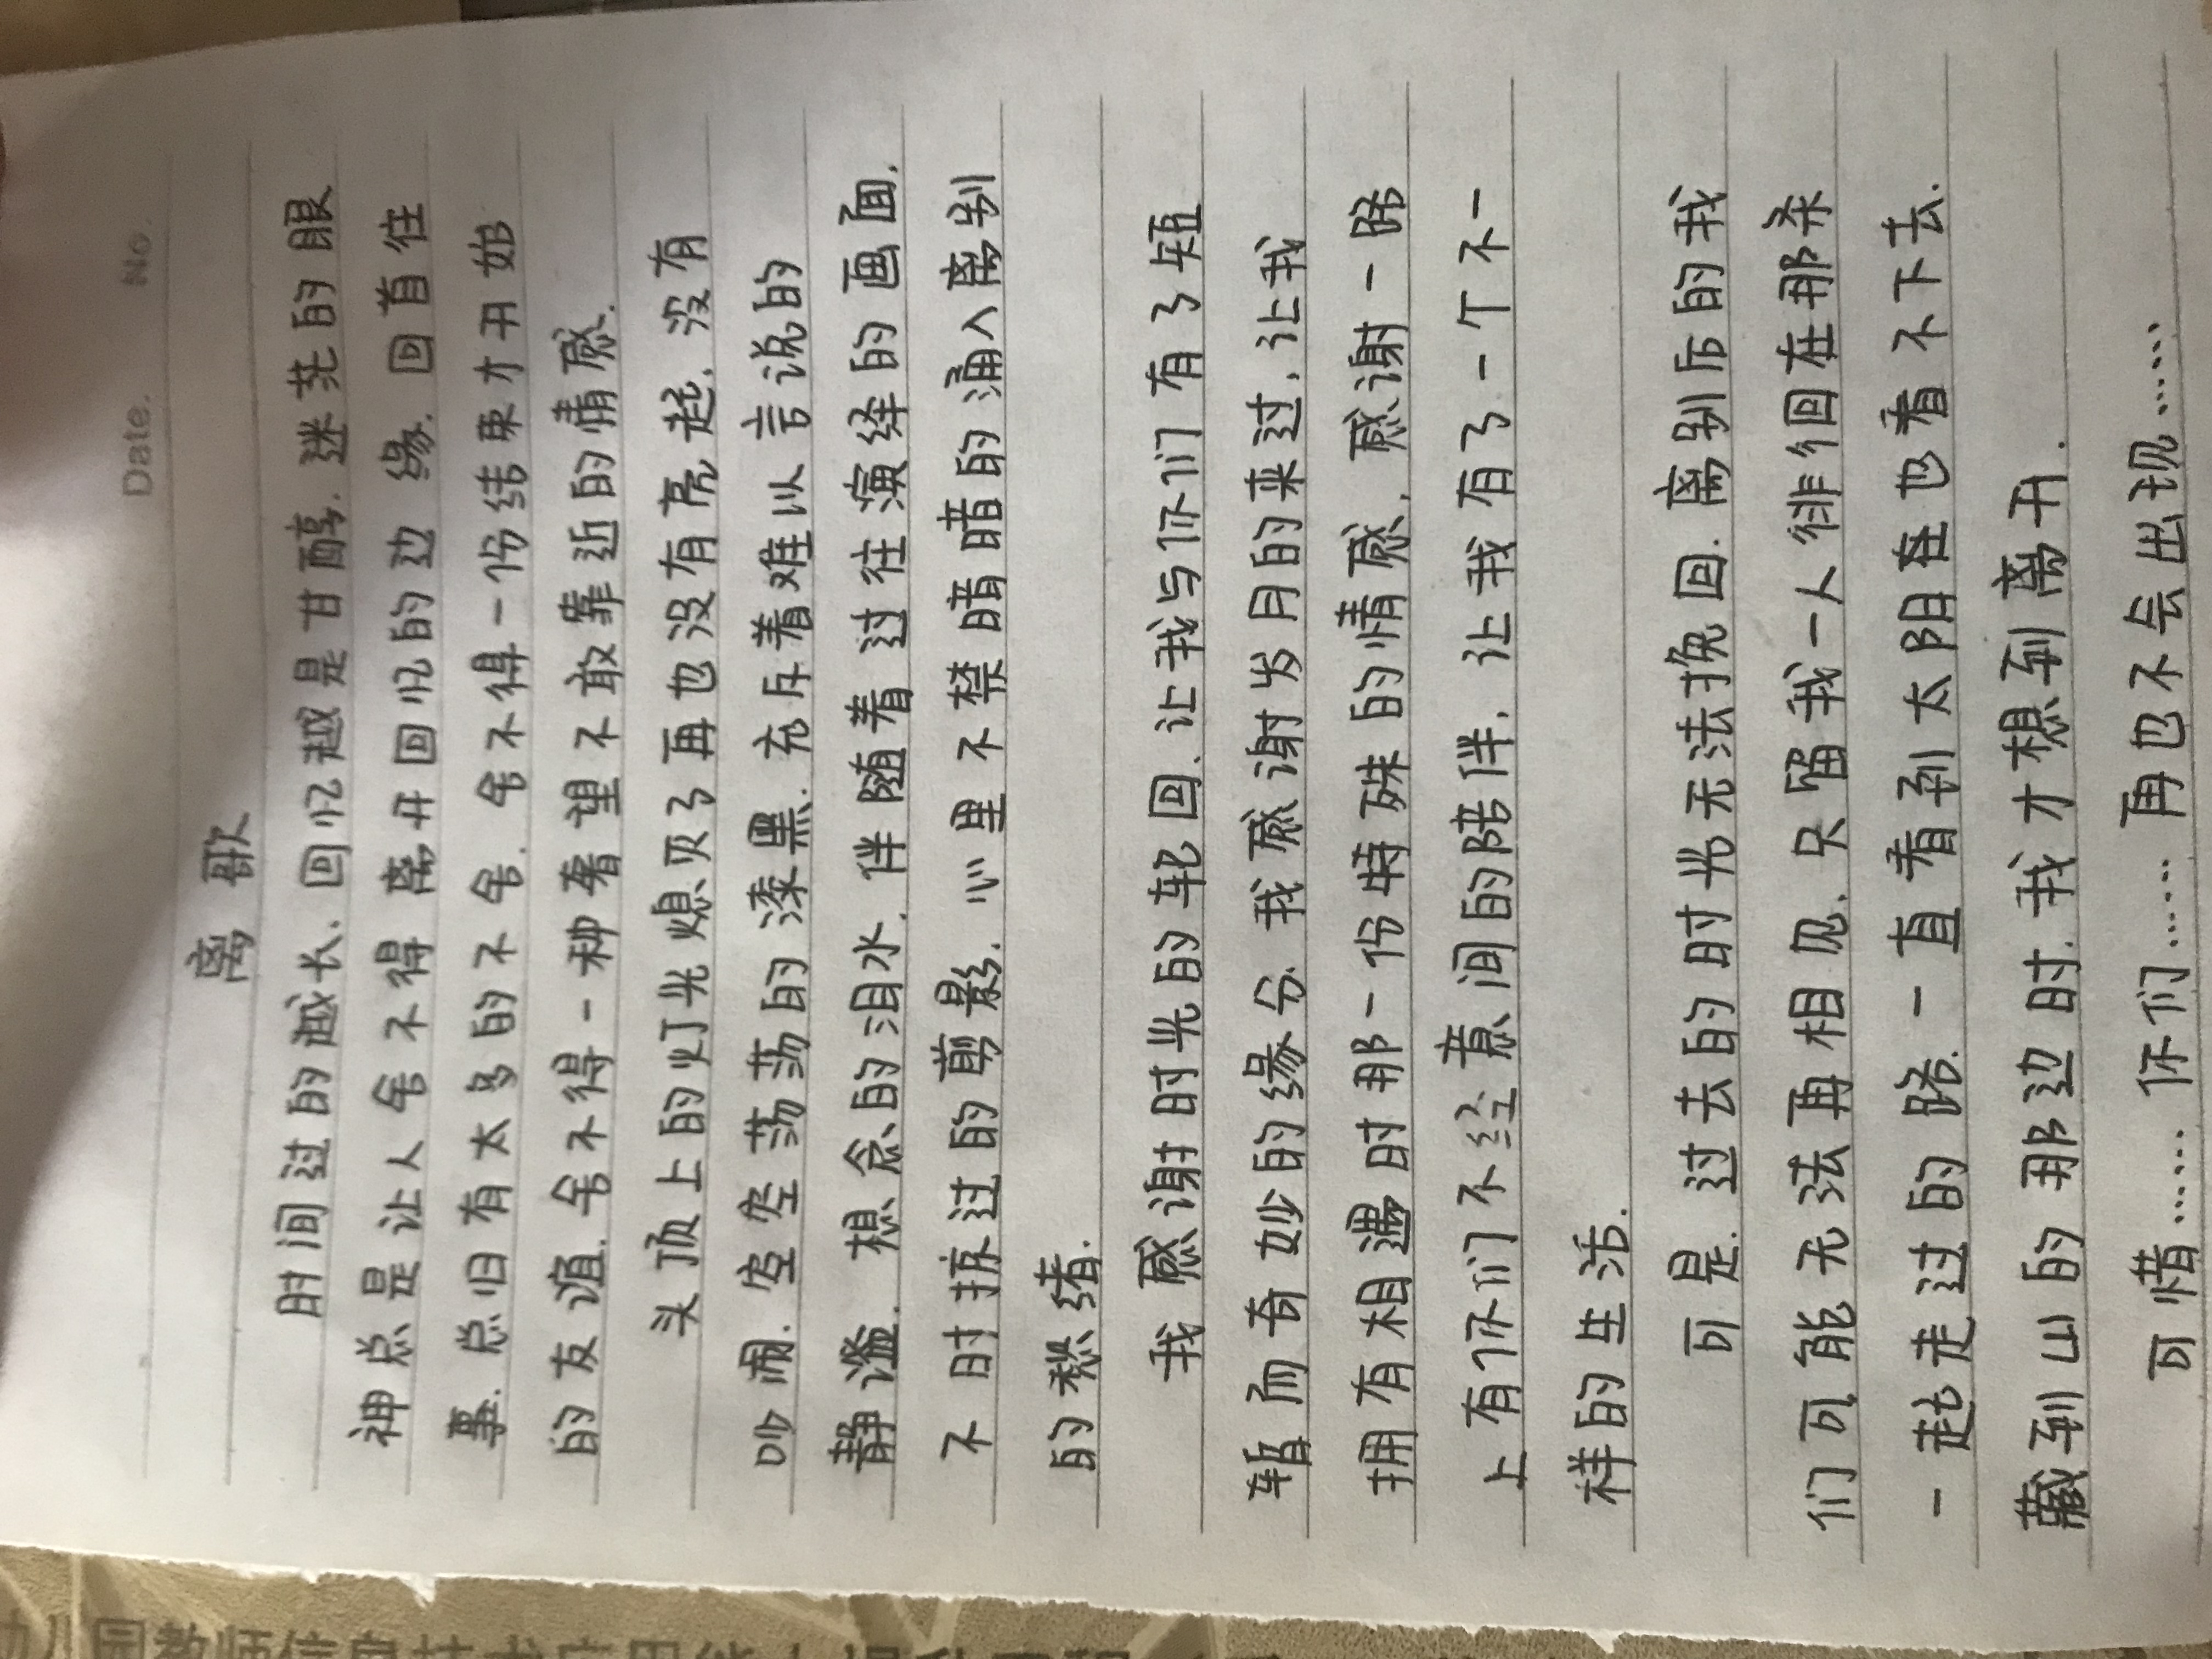 Date. No.
离歌
时间过的越长.回忆越是甘醇.迷茫的眼
神总是让人舍不得离开回忆的边缘.回首往
事.总归有太多的不舍.舍不得一份结束才开始
的友谊.舍不得一种奢望不敢靠近的情感.
头顶上的灯光熄灭了再也没有亮起.没有
吵闹.空空荡荡的漆黑.充斥着难以言说的
静谧.想念的泪水.伴随着过往演绎的画面.
不时掠过的剪影.心里不禁暗暗的涌入离别
的愁绪.
我感谢时光的轮回.让我与你们有了短
暂而奇妙的缘分.我感谢岁月的来过.让我
拥有相遇时那一份特殊的情感.感谢一路
上有你们不经意间的陪伴.让我有了一个不一
样的生活.
可是.过去的时光无法挽回.离别后的我
们可能无法再相见.只留我一人徘徊在那条
一起走过的路.一直看到太阳在也看不下去.
藏到山的那边时.我才想到离开.
可惜……你们……再也不会出现……
幼儿园教师信息技术应用能力提升